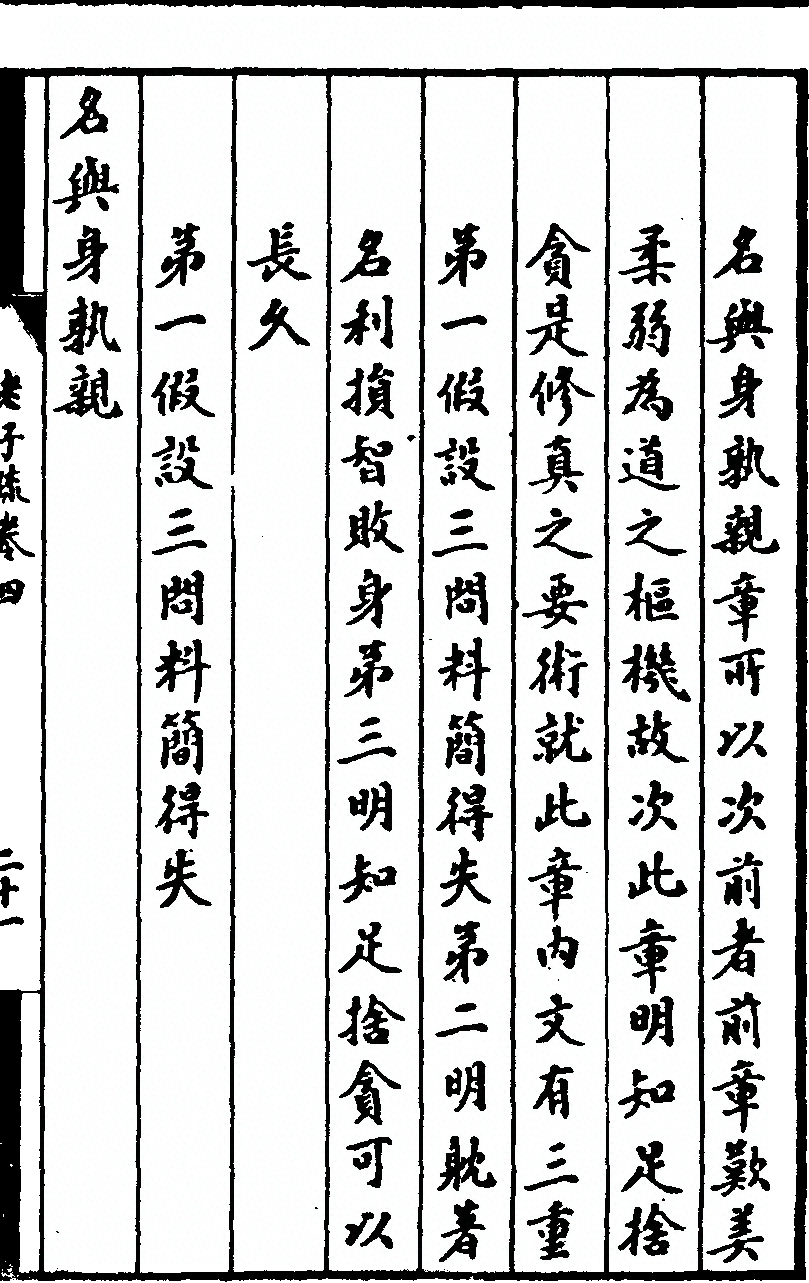 名與身孰親章所以次前者前章歎美
柔弱為道之樞機故次此章明知足捨
貪是修真之要術就此章內文有三重
第一假設三問料簡得失第二明躭著
名利損智敗身第三明知足捨貪可以
長久
第一假設三問料簡得失
名與身孰親
老子疏卷四
二十一